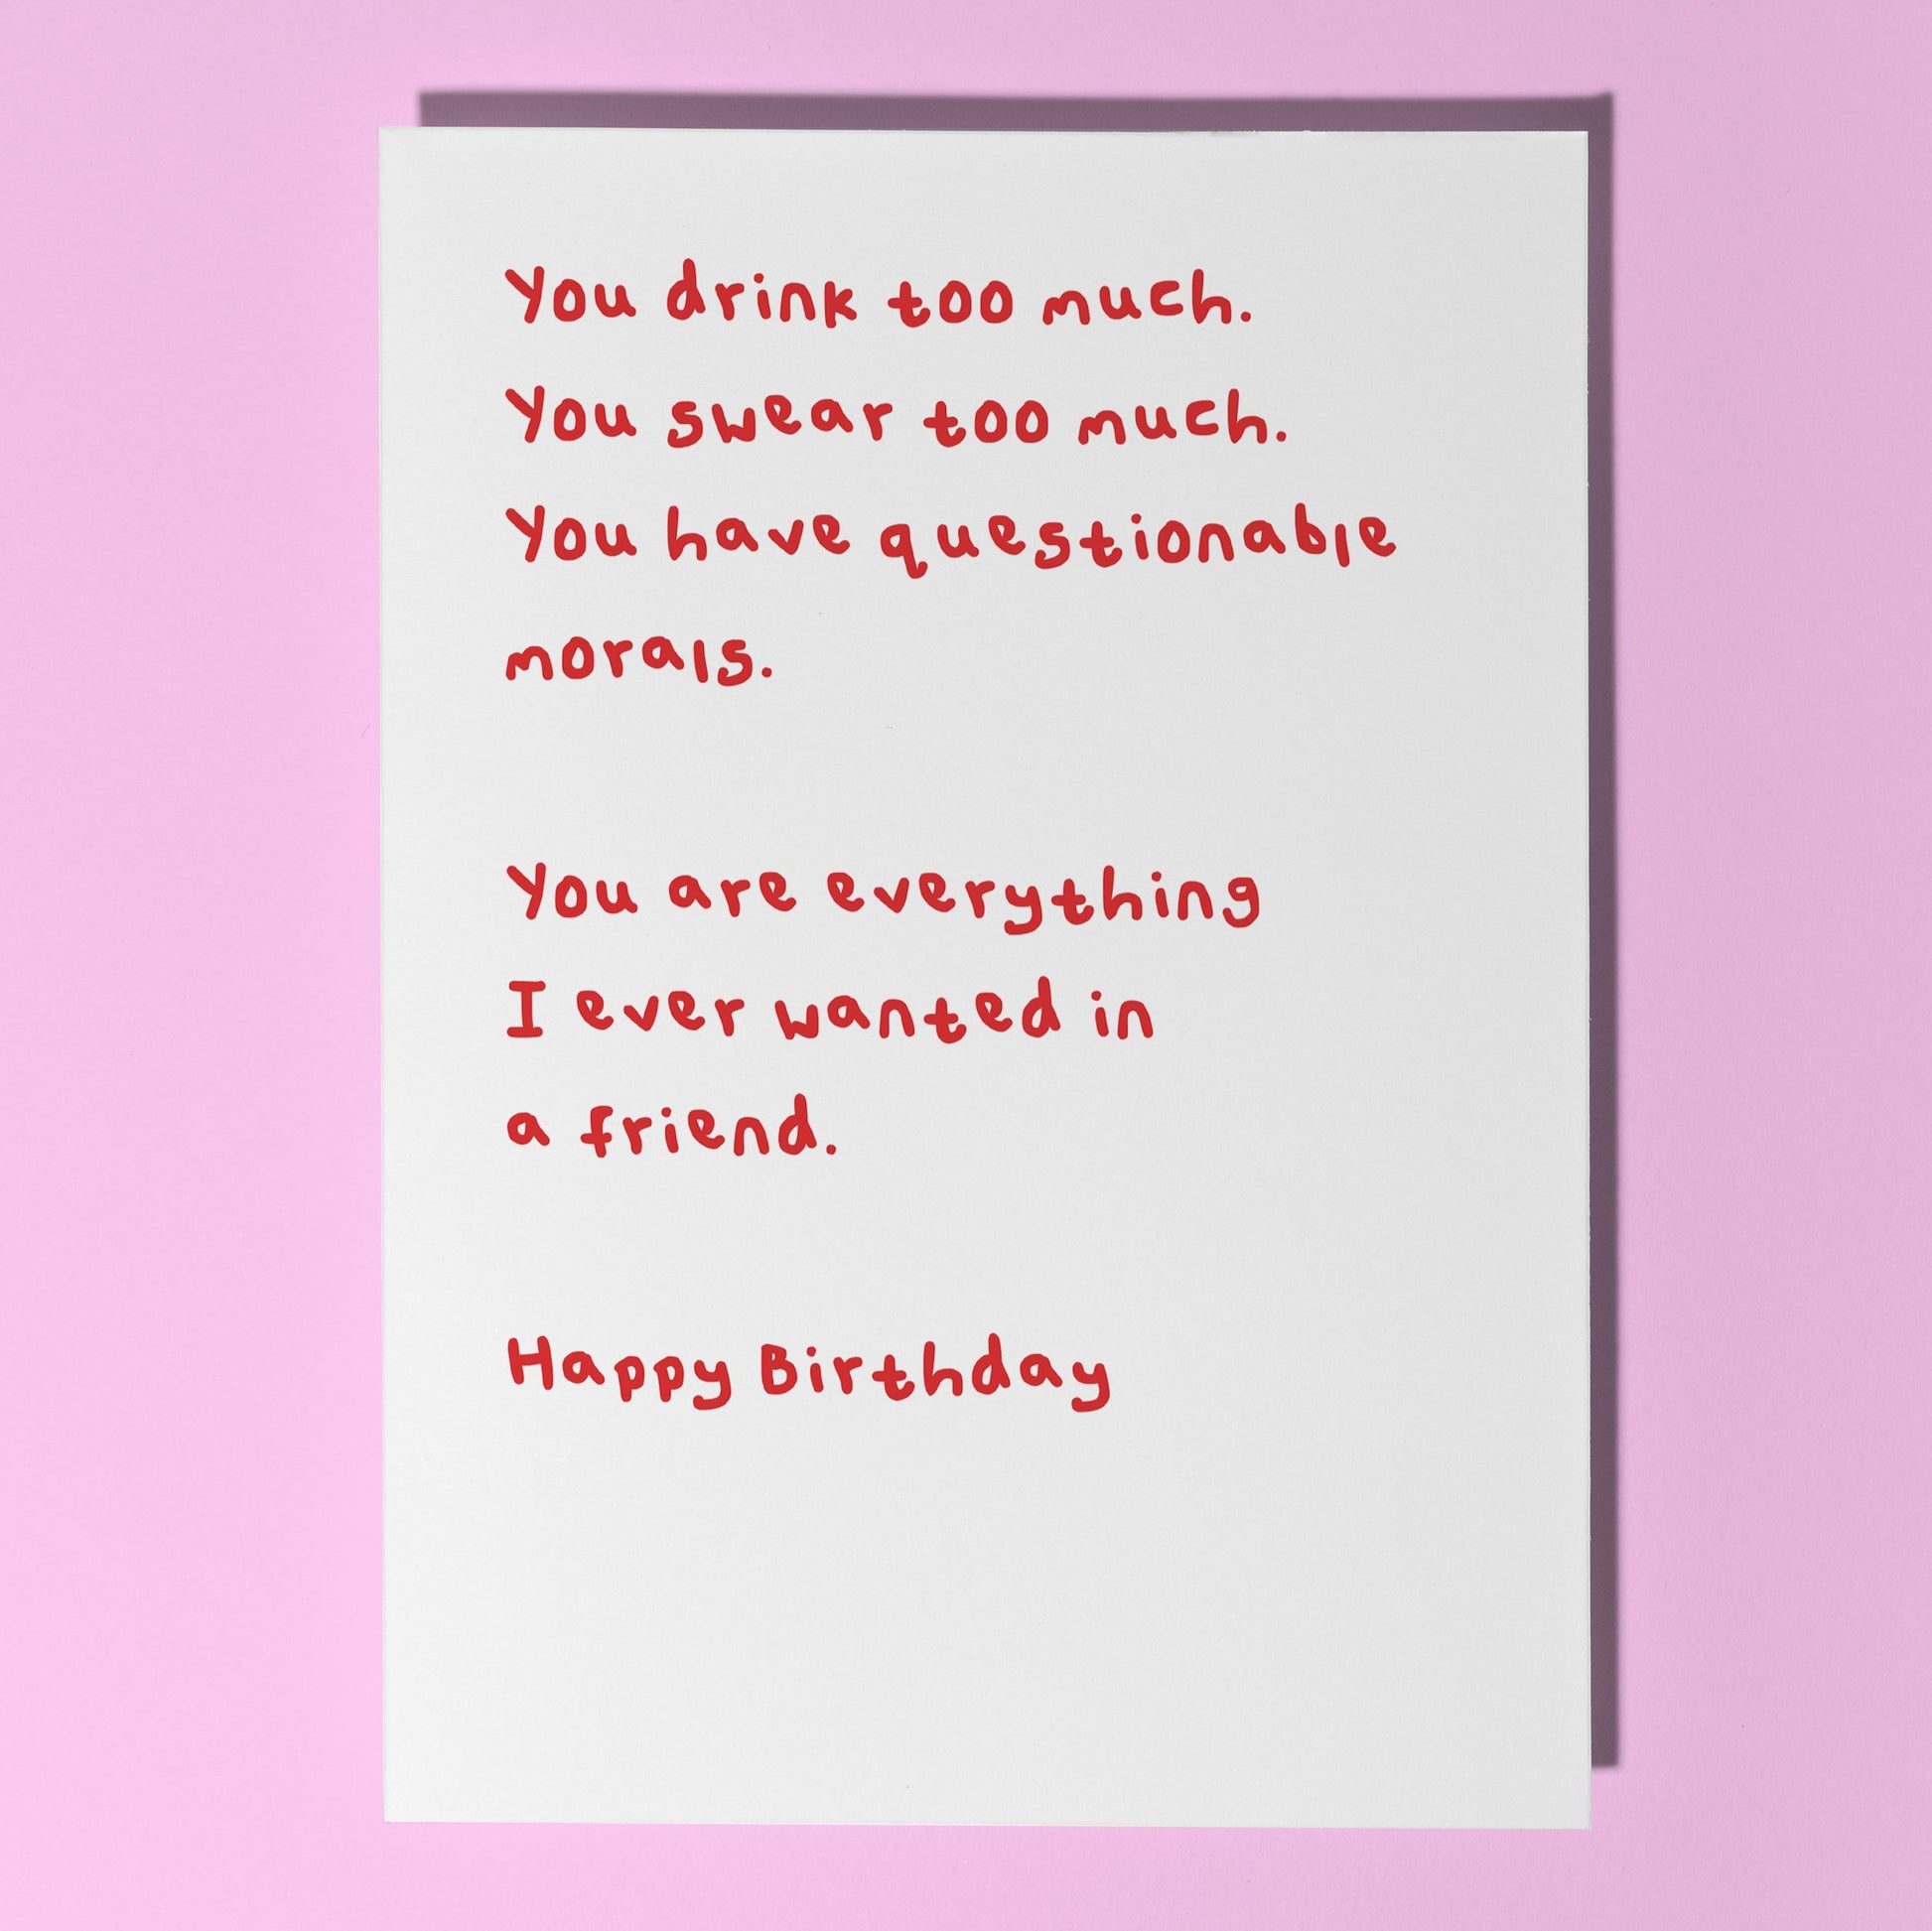 You drink too much.
You swear too much.
You have questionable
morals.
You are everything
I ever wanted in
a friend.
Happy Birthday